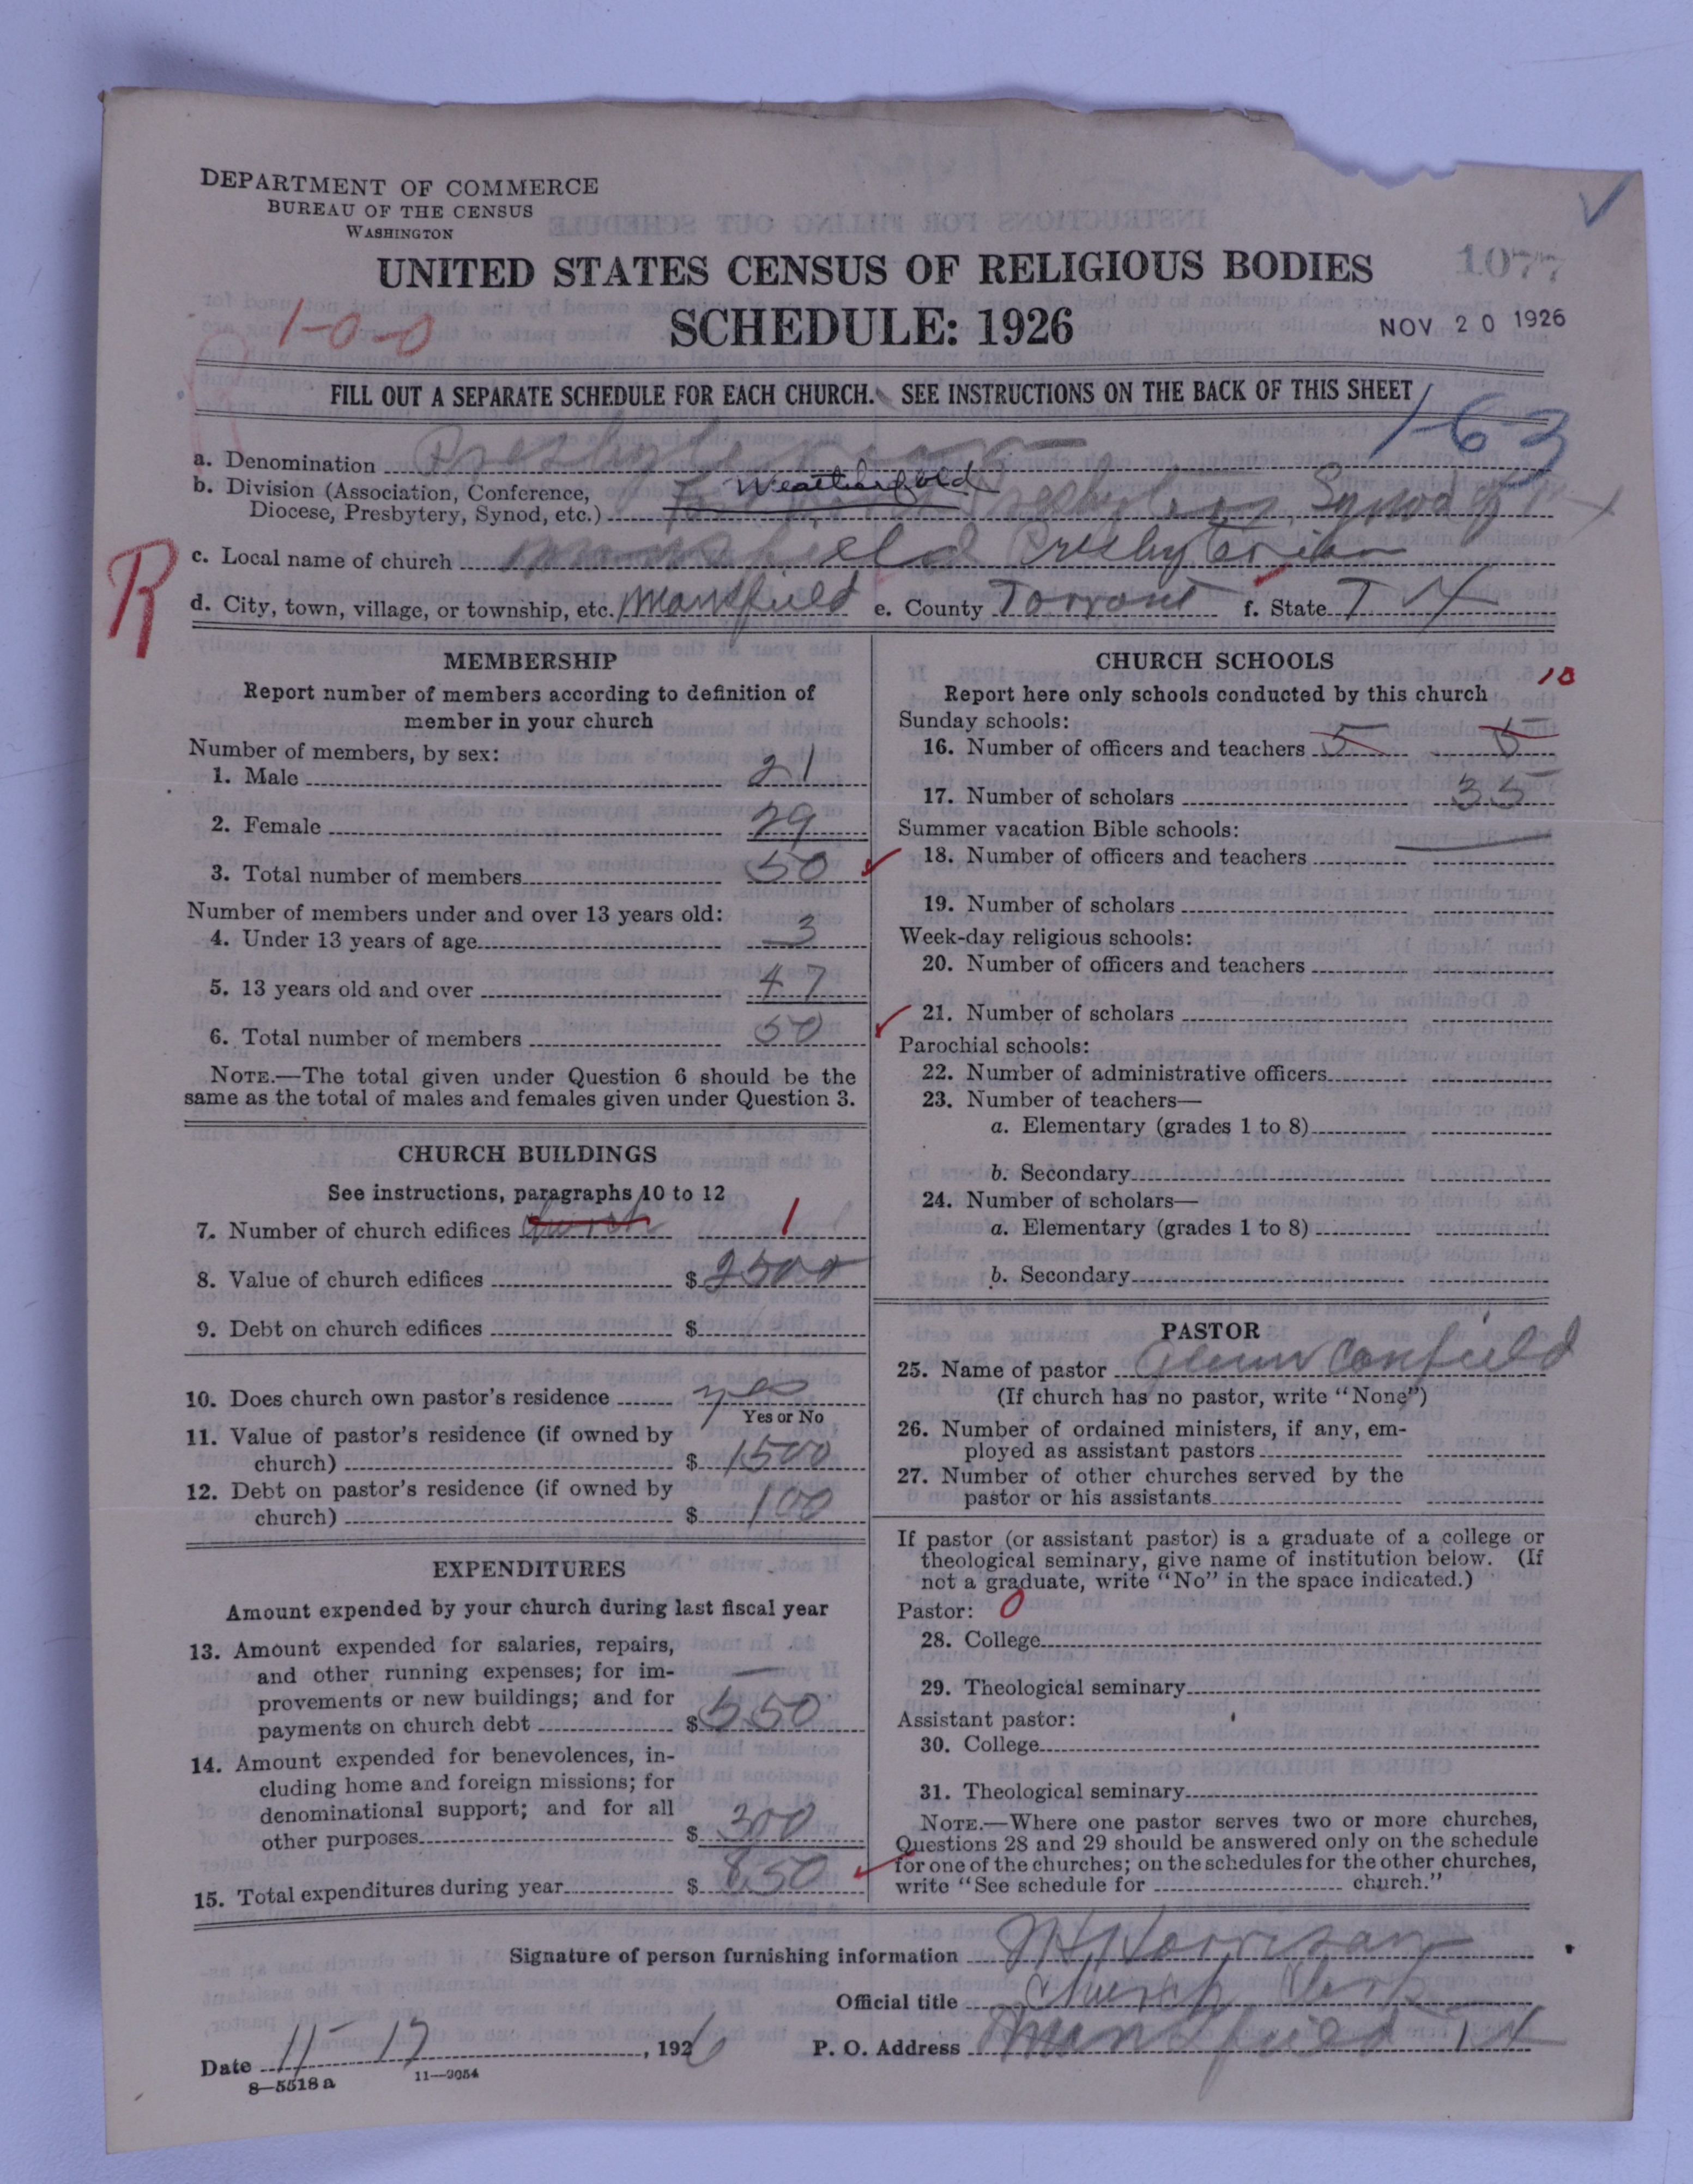 DEPARTMENT OF COMMERCE
BUREAU OF THE CENSUS
WASHINGTON
UNITED STATES CENSUS OF RELIGIOUS BODIES
1077
SCHEDULE: 1926
NOV 20 1926
1-0-0
FILL OUT A SEPARATE SCHEDULE FOR EACH CHURCH. SEE INSTRUCTIONS ON THE BACK OF THIS SHEET
1-63
a. Denomination Presbyterian
b. Division (Association, Conference, Weatherford
Diocese, Presbytery, Synod, etc.) Presbytery, Synod of
R
c. Local name of church Mansfield Presbyterian
d. City, town, village, or township, etc. Mansfield e. County Tarrant f. State TX
MEMBERSHIP
Report number of members according to definition of
member in your church
Number of members, by sex:
1. Male 21
2. Female 29
3. Total number of members 50
Number of members under and over 13 years old:
4. Under 13 years of age 3
5. 13 years old and over 47
6. Total number of members 50
NOTE.—The total given under Question 6 should be the
same as the total of males and females given under Question 3.
CHURCH BUILDINGS
See instructions, paragraphs 10 to 12
7. Number of church edifices church 1
8. Value of church edifices $ 2500
9. Debt on church edifices $
10. Does church own pastor's residence yes
Yes or No
11. Value of pastor's residence (if owned by
church) $ 1500
12. Debt on pastor's residence (if owned by
church) $ 100
EXPENDITURES
Amount expended by your church during last fiscal year
13. Amount expended for salaries, repairs,
and other running expenses; for im-
provements or new buildings; and for
payments on church debt $ 550
14. Amount expended for benevolences, in-
cluding home and foreign missions; for
denominational support; and for all
other purposes $ 300
15. Total expenditures during year $ 850
CHURCH SCHOOLS
Report here only schools conducted by this church
10
Sunday schools:
16. Number of officers and teachers 5 5
17. Number of scholars 35
Summer vacation Bible schools:
18. Number of officers and teachers
19. Number of scholars
Week-day religious schools:
20. Number of officers and teachers
21. Number of scholars
Parochial schools:
22. Number of administrative officers
23. Number of teachers—
a. Elementary (grades 1 to 8)
b. Secondary
24. Number of scholars—
a. Elementary (grades 1 to 8)
b. Secondary
PASTOR
25. Name of pastor Glenn Canfield
(If church has no pastor, write "None")
26. Number of ordained ministers, if any, em-
ployed as assistant pastors
27. Number of other churches served by the
pastor or his assistants
If pastor (or assistant pastor) is a graduate of a college or
theological seminary, give name of institution below. (If
not a graduate, write "No" in the space indicated.)
Pastor: 0
28. College
29. Theological seminary
Assistant pastor:
30. College
31. Theological seminary
NOTE.—Where one pastor serves two or more churches,
Questions 28 and 29 should be answered only on the schedule
for one of the churches; on the schedules for the other churches,
write "See schedule for church."
Signature of person furnishing information J H Harrison
Official title Church Clerk
Date 11-17, 1926 P. O. Address Mansfield TX
8—5518 a 11—9054